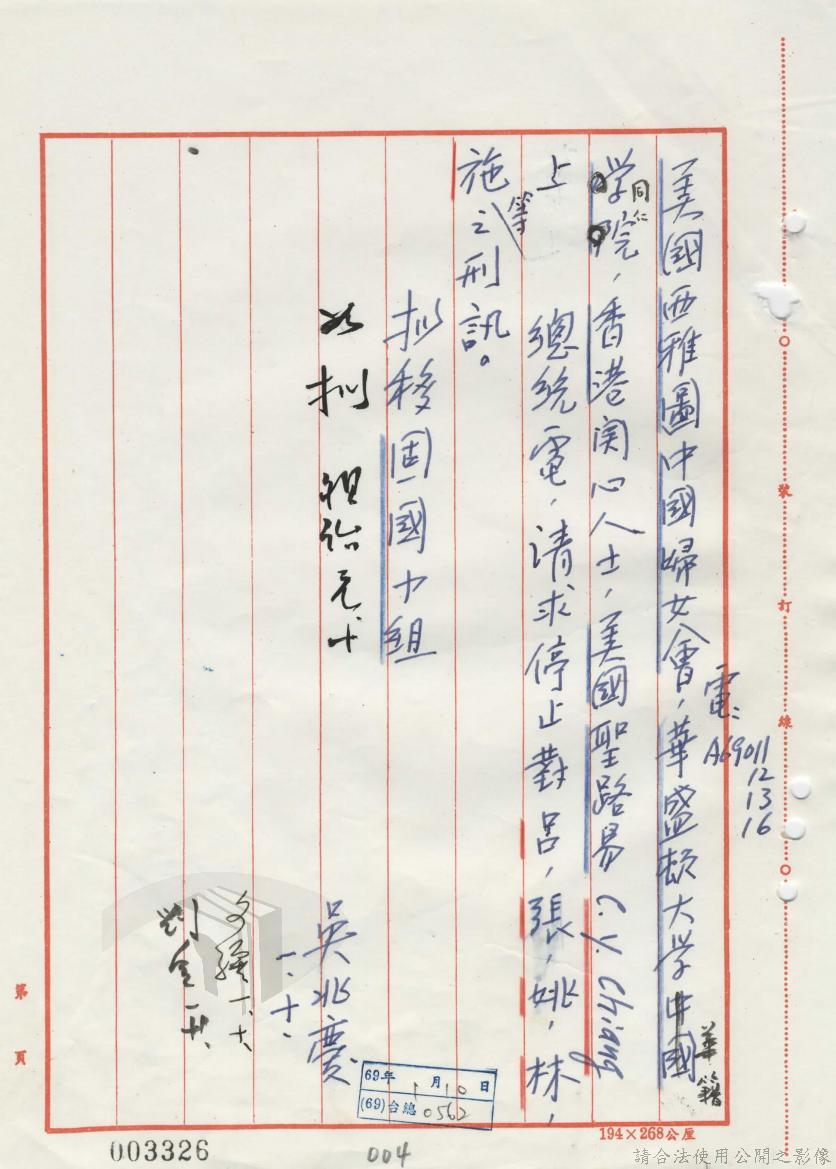 美國西雅圖中國婦女會，華盛頓大学中國
華籍
学院，香港関心人士，美國聖路易 C. Y. Chiang
同仁
上
總統電，請求停止對呂，張，姚，林，
施之刑訊。
等
擬移固國小組
如擬
吳兆慶
一、十、
電：
A69011
12
13
16
69年1月10日
(69)台總0562
號
訂
線
第
頁
194×268公厘
003326
004
請合法使用公開之影像